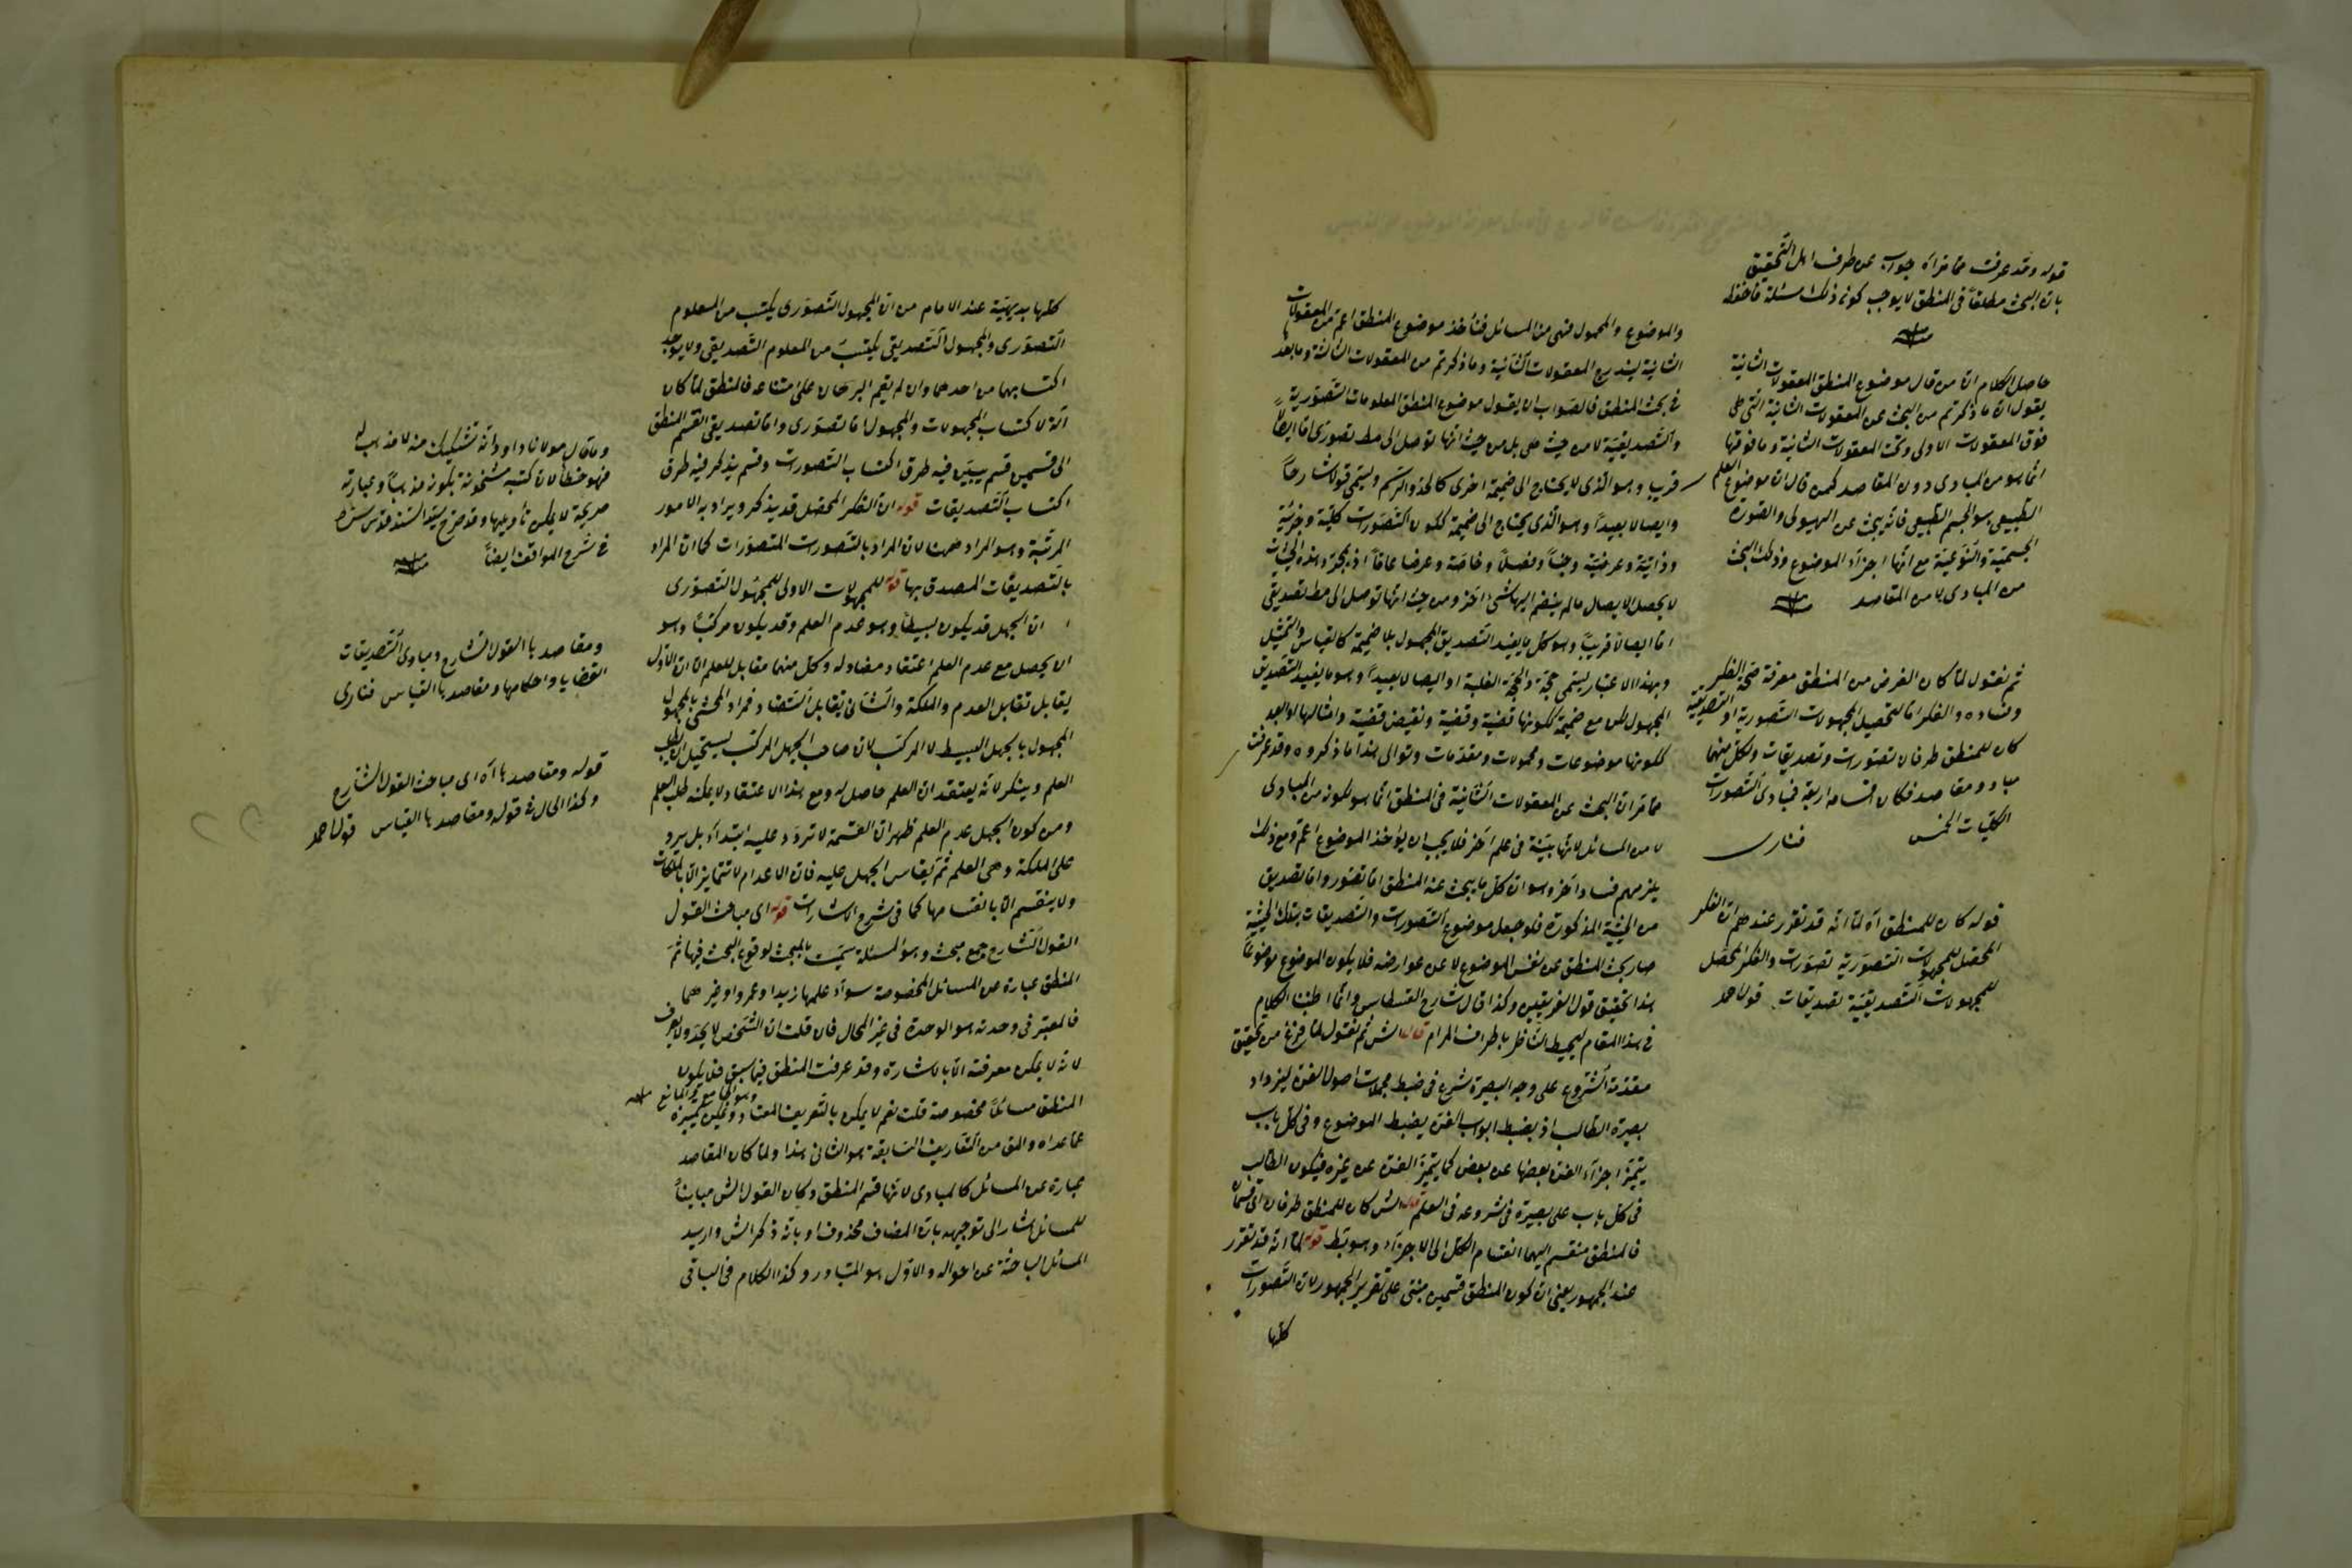 والموضوع والمحمول فهى من المسائل فنأخذ موضوع المنطق اعم من المعقولات
الثانية ليندرج المعقولات الثانية وما ذكرتم من المعقولات الثالثة وما بعدها
فى بحث المنطق فالصواب ان يقول موضوع المنطق المعلومات التصورية
والتصديقية لا من حيث هى بل من حيث انها توصل الى مط تصورى اما ايصالاً
قريباً وهو الذى لا يحتاج الى ضميمة اخرى كالحد والرسم ويسمى قولا شارحاً
وايصالا بعيداً وهو الذى يحتاج الى ضميمة ككون التصورات كلية وجزئية
وذاتية وعرضية وجنساً وفصلاً وخاصة وعرضا عاماً اذ بمجرد هذه الحيثيات
لا يحصل الايصال ما لم ينضم اليها شئ اخر ومن حيث انها توصل الى مط تصديقى
اما ايصالا قريباً وهو كل ما يفيد التصديق المجهول بلا ضميمة كالقياس والتمثيل
وبهذا الاعتبار يسمى حجة والحجة الغلبة او ايصالا بعيداً وهو ما يفيد التصديق
المجهول لكن مع ضميمة ككونها قضية وقضية ونقيض قضية وامثالها او ابعد
ككونها موضوعات ومحمولات ومقدمات وتوالى هذا ما ذكروه وقد عرفت
مما مر ان البحث عن المعقولات الثانية فى المنطق انما هو لكونه من المبادى
لا من المسائل لانها بينة فى علم اخر فلا يجب ان يؤخذ الموضوع اعم ومع ذلك
يلزمهم فساد اخر وهو ان كل ما يبحث عنه المنطق اما تصور واما تصديق
من الحيثية المذكورة فلو جعل موضوع التصورات والتصديقات بتلك الحيثية
صار بحث المنطق عن نفس الموضوع لا عن عوارضه فلا يكون الموضوع موضوعاً
هذا تحقيق قول الفريقين وكذا قال شارح القسطاس وانما اطنبنا الكلام
فى هذا المقام ليحيط الناظر باطراف المرام قال الش ثم نقول لما فرغ من تحقيق
مقدمة الشروع على وجه البصيرة شرع فى ضبط مجملات اصول الفن ليزداد
بصيرة الطالب اذ بضبط ابواب الفن يضبط الموضوع وفى كل باب
يتميز اجزاء الفن بعضها عن بعض كما يتميز الفن عن غيره فيكون الطالب
فى كل باب على بصيرة فى شروعه فى العلم قال الش كان للمنطق طرفان اى قسمان
فالمنطق منقسم اليهما انقسام الكل الى الاجزاء وهو بط قوله لما انه قد تقرر
عند الجمهور يعنى ان كون المنطق قسمين مبنى على تقرير الجمهور لان التصورات
كلها
قوله وقد عرفت مما مر اه جواب عن طرف اهل التحقيق
بان البحث مطلقاً فى المنطق لا يوجب كونه ذلك مسئلة فاحفظه
حاصل الكلام ان من قال موضوع المنطق المعقولات الثانية
يقول ان ما ذكرتم من البحث عن المعقولات الثانية التى هى
فوق المعقولات الاولى وتحت المعقولات الثانية وما فوقها
انما هو من المبادى دون المقاصد كمن قال ان موضوع العلم
الطبيعى هو الجسم الطبيعى فانه يبحث عن الهيولى والصورة
الجسمية والنوعية مع انها اجزاء الموضوع وذلك البحث
من المبادى لا من المقاصد
ثم نقول لما كان الغرض من المنطق معرفة صحة الفكر
وفساده والفكر اما لتحصيل المجهولات التصورية او التصديقية
كان للمنطق طرفان تصورات وتصديقات ولكل منهما
مباد ومقاصد فكان اقسامه اربعة فمبادى التصورات
الكليات الخمس فنارى
قوله كان للمنطق اه لما انه قد تقرر عندهم ان الفكر
المحصل للمجهولات التصورية تصورات والفكر المحصل
للمجهولات التصديقية تصديقات قول احمد
كلها بديهية عند الامام من ان المجهول التصورى يكتسب من المعلوم
التصورى والمجهول التصديقى يكتسب من المعلوم التصديقى ولا يوجد
اكتسابهما من احدهما وان لم يقم البرهان على امتناعه فالمنطق لما كان
آلة لاكتساب المجهولات والمجهول اما تصورى واما تصديقى انقسم المنطق
الى قسمين قسم يبين فيه طرق اكتساب التصورات وقسم يذكر فيه طرق
اكتساب التصديقات قوله ان الفكر المحصل قد يذكر ويراد به الامور
المرتبة وهو المراد ههنا لان المراد بالتصورات المتصورات كما ان المراد
بالتصديقات المصدق بها قوله للمجهولات الاولى للمجهول التصورى
ان الجهل قد يكون بسيطاً وهو عدم العلم وقد يكون مركباً وهو
ان يحصل مع عدم العلم اعتقاد مضاد له وكل منهما مقابل للعلم الا ان الاول
يقابل تقابل العدم والملكة والثانى يقابل التضاد فمراد المحشى بالمجهول
المجهول بالجهل البسيط لا المركب لان صاحب الجهل المركب يستحيل ان يطلب
العلم وينكر لانه يعتقد ان العلم حاصل له ومع هذا الاعتقاد لا يمكنه طلب العلم
ومن كون الجهل عدم العلم ظهر ان القسمة لا ترد عليه ابتداء بل يرد
على الملكة وهى العلم ثم يقاس الجهل عليه فان الاعدام لا تتمايز الا بالملكات
ولا ينقسم الا بانقسامها كما فى شرح الاشارات قوله اى مباحث القول
القول الشارح جمع مبحث وهو المسئلة سميت بالمبحث لوقوع البحث فيها ثم
المنطق عبارة عن المسائل المخصوصة سواء علمها زيد او عمرو او غيرهما
فالمعتبر فى وحدته هو الوحدة فى غير المحال فان قلت ان الشخص لا يحد ولا يعرف
لانه لا يمكن معرفته الا بالاشارة وقد عرفت المنطق فيما سبق فلا يكون
المنطق مسائل مخصوصة قلت نعم لا يمكن بالتعريف المعتاد ويمكن تمييزه
عما عداه والمق من التعاريف السابقة هو الثانى هذا ولما كان المقاصد
عبارة عن المسائل كالمبادى لانها قسم المنطق وكان القول الش مبايناً
للمسائل اشار الى توجيهه بان المضاف محذوف او بانه ذكر الش واريد
المسائل الباحثة عن احواله والاول هو المتبادر وكذا الكلام فى الباقى
وما قال مولانا داود انه تشكيك منه لا مذهب له
فهو خطأ لان كتبه مشحونة بكونه مذهباً وعبارته
صريحة لا يمكن تأويلها وقد صرح سيد السند قدس سره
فى شرح المواقف ايضاً
ومقاصدها القول الشارح ومبادى التصديقات
القضايا واحكامها ومقاصدها القياس فنارى
قوله ومقاصدها اه اى مباحث القول الشارح
وكذا الحال فى قوله ومقاصدها القياس قول احمد